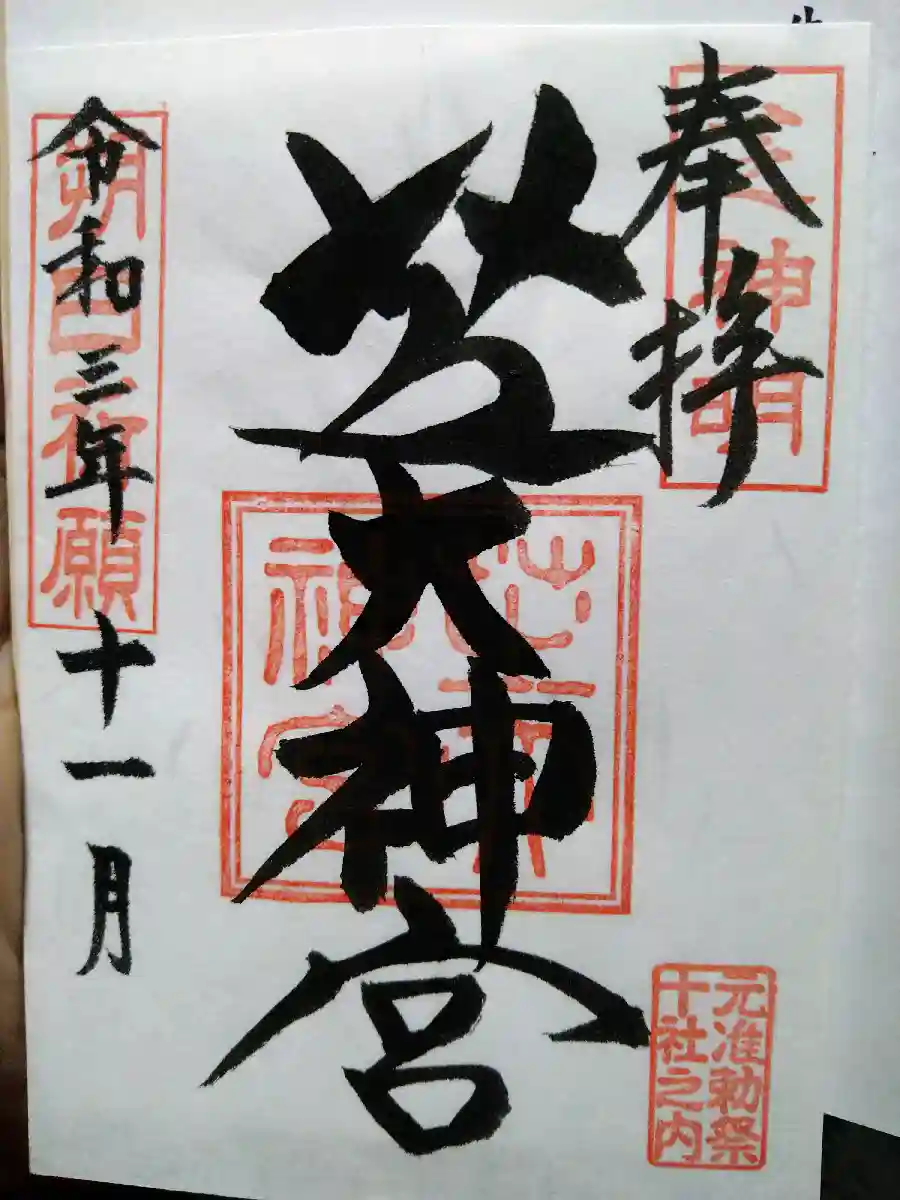 奉拝
芝神明
芝大神宮
芝大神宮
元准勅祭
十社之内
令和三年十一月
朔日登願